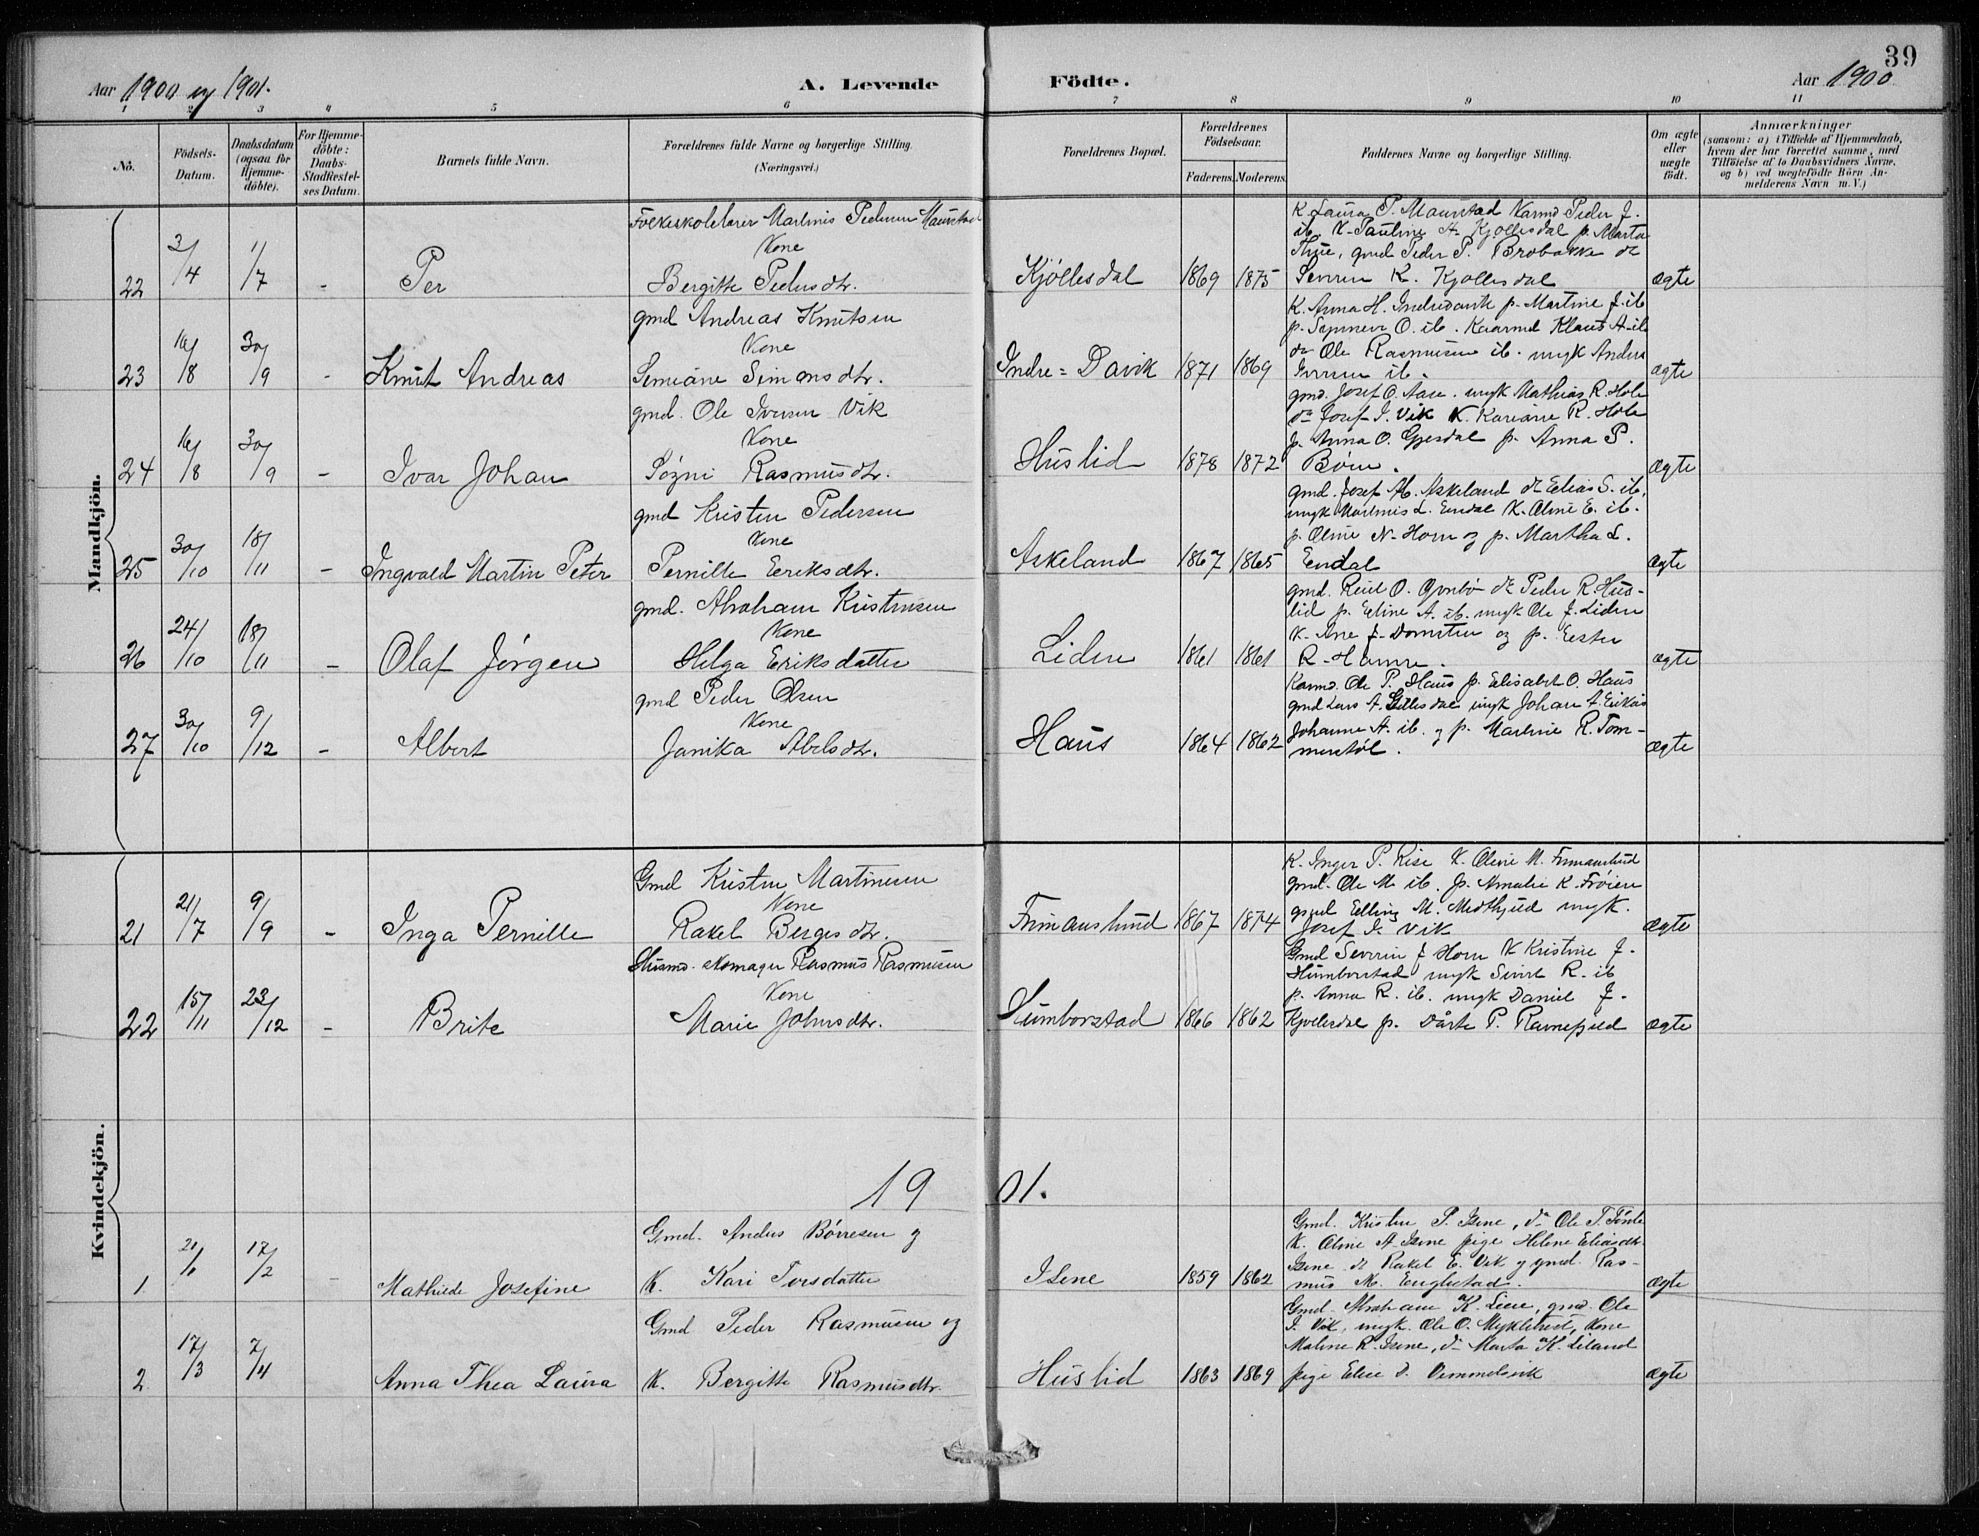 39
Aar 1900 og 1901.
A. Levende
Födte.
Aar 1900
1 2 3 4 5 6 7 8 9 10 11
No.
Födsels-
Datum.
Daabsdatum
(ogsaa for
Hjemme-
döbte).
For Hjemme-
döbte:
Daabs-
Stadfæstel-
ses Datum.
Barnets fulde Navn.
Forældrenes fulde Navne og borgerlige Stilling.
(Næringsvei.)
Forældrenes Bopæl.
Forældrenes
Födselsaar.
Faderens.
Moderens.
Faddernes Navne og borgerlige Stilling.
Om ægte
eller
uægte
födt.
Anmærkninger
(saasom: a) i Tilfælde af Hjemmedaab,
hvem der har forrettet samme, med
Tilföielse af to Daabsvidners Navne,
og b) ved uægtefödte Börn An-
melderens Navn m. V.)
Mandkjön.
Folkeskolelærer Martinis Pedersen Maurstad
Kone
22 3/4 1/7 - Per Bergitte Pedersdtr. Kjöllesdal 1869 1875 ægte
K. Laura P. Maurstad Karmd Peder J.
ib. K. Pauline A. Kjöllesdal p. Marta
Thue, gmd Peder P. Brobakke do
Severin K. Kjöllesdal
gmd Andreas Knutsen
Kone
23 16/8 30/9 - Knut Andreas Simeane Simonsdtr. Indre=Davik 1871 1869 ægte
K. Anna H. Indredavik p. Martine J. ib
p. Synneve O. ib. Kaarmd Klaus A. ib
do Ole Rasmusen ib. ungk Anders
Iversen ib.
gmd. Ole Iversen Vik
Kone
24 16/8 30/9 - Ivar Johan Sögni Rasmusdtr. Huslid 1878 1872 ægte
gmd. Josef O. Aase. ungk Mathias R. Hole
do Josef I. Vik K. Kariane R. Hole
p. Anna O. Gjesdal p. Anna P.
Börn.
gmd Kristen Pedersen
Kone
25 30/10 18/11 - Ingvald Martin Peter Pernille Eeriksdtr. Askeland 1867 1865 ægte
gmd. Josef M. Askeland do Elias S. ib.
ungk Martinis L. Endal K. Oline E. ib.
p. Oline N. Horn og p. Martha L.
Endal
gmd. Abraham Kristensen
Kone
26 24/10 18/11 - Olaf Jörgen Helga Eriksdatter Liden 1861 1861 ægte
gmd. Reiel O. do Peder R. Hus-
lid p. Eline A. ib. ungk Ole J. Liden
K. Ane J. Domsten og p. Ester
R. Hamre.
gmd Peder Olsen
Kone
27 30/10 9/12 - Albert Janika Abelsdtr. Haus 1864 1862 ægte
Karmd. Ole P. Haus p. Elisabet O. Haus
gmd Lars A. Gillesdal ungk Johan A.
Johanne A. ib. og p. Martine R. Tom-
merstöl.
Kvindekjön.
Gmd Kristen Martinesen
Kone
21 21/7 9/9 - Inga Pernille Rakel Bergesdtr. Frimanslund 1867 1874 ægte
K. Inger P. Rise K. Oline M. Frimanslund
gmd. Ole M. ib. p. Amalie K. Fröien
gmd Elling M. Midthjell ungk.
Josef I. Vik
Husmd. skomager Rasmus Rasmusen
Kone
22 15/11 23/12 - Brite Marie Johnsdtr. Humborstad 1866 1862 ægte
Gmd Severin J Horn K Kristine J.
Humborstad ungk Sivert R. ib
p. Anna R. ib. ungk Daniel J.
Kjöllesdal p. Dårte P. Ravnefjeld
1901.
Gmd. Anders Börresen og
1 21/1 17/2 - Mathilde Josefine K. Kari Torsdatter Isene 1859 1862 ægte
Gmd. Kristen P. Isene, do Ole T.
K. Oline A. Isene pige Helene Eliasdtr.
Isene do Rakel E. Vik og gmd. Ras-
mus M. Englestad.
Gmd Peder Rasmusen og
2 17/3 7/4 Anna Thea Laura K. Bergitte Rasmusdtr. Huslid 1863 1869 ægte
Gmd. Abraham K. Liene, gmd. Ole
I. Vik, ungk. Ole O. Myklebust, Kone
Maline R. Isene, do Marta K. Liland
pige Eline D. Vemmelsvik